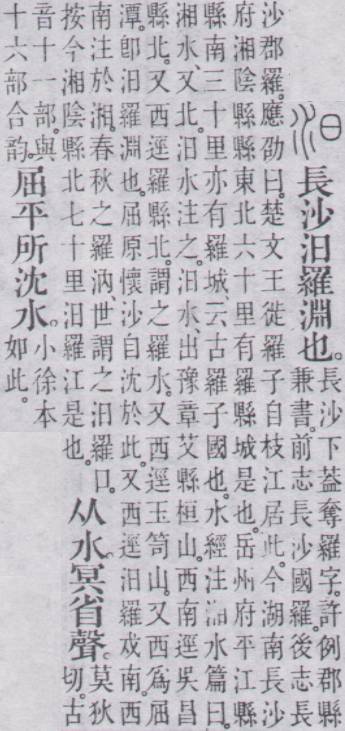 汨
長沙汨羅淵也。
長沙下葢奪羅字。許例郡縣
兼書。前志長沙國羅。後志長
沙郡羅。應劭曰。楚文王徙羅子自枝江居此。今湖南長沙
府湘陰縣縣東北六十里有羅縣城是也。岳州府平江縣
縣南三十里亦有羅城、云古羅子國也。水經注湘水篇曰。
湘水、又北。汨水注之。汨水、出豫章艾縣桓山。西南逕吳昌
縣北。又西逕羅縣北。謂之羅水。又西逕玉笥山。又西爲屈
潭。卽汨羅淵也。屈原懷沙自沈於此。又西逕汨羅戍南。西
南注於湘。春秋之羅汭、世謂之汨羅口。
按今湘陰縣北七十里汨羅江是也。
从水。冥省聲。
莫狄
切。古
音十一部。與
十六部合韵。
屈平所沈水。
小徐本
如此。